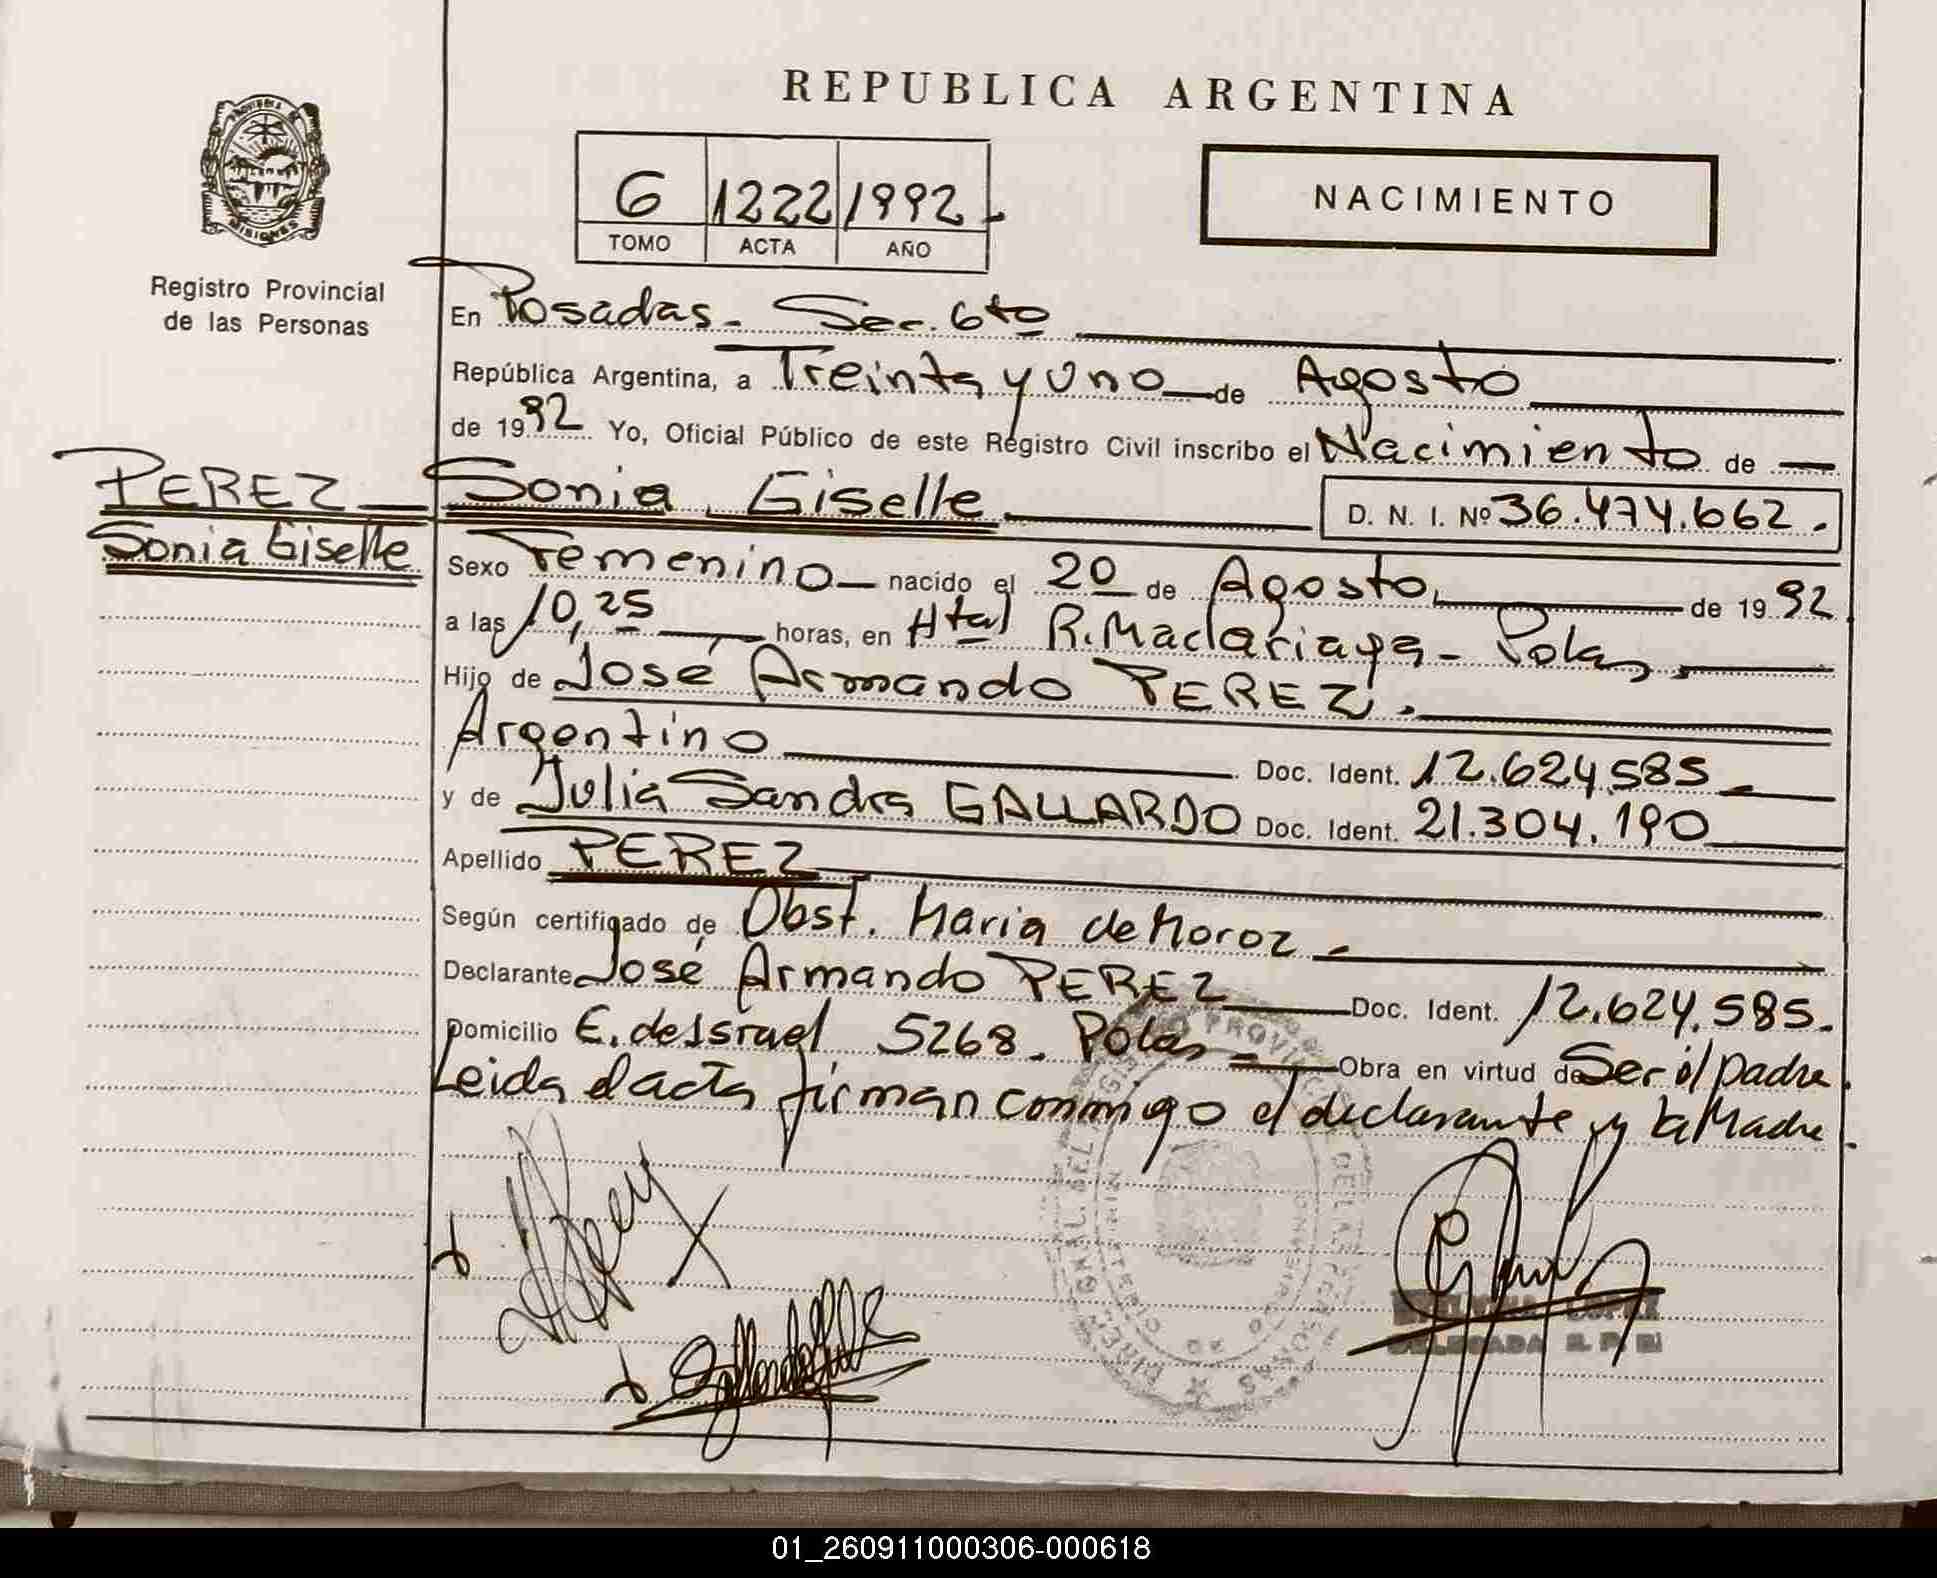 REPUBLICA ARGENTINA
PROVINCIA MISIONES
Registro Provincial
de las Personas
6 1222 1992
TOMO ACTA AÑO
NACIMIENTO
En Posadas - Sec. 6to
República Argentina, a Treinta y Uno de Agosto
de 1992 Yo, Oficial Público de este Registro Civil inscribo el Nacimiento de
PEREZ
Sonia Giselle
Sonia Giselle D. N. I. Nº 36.474.662.
Sexo Femenino nacido el 20 de Agosto de 1992
a las 10,25 horas, en Htal R. Madariaga - Pdas
Hijo de José Armando PEREZ.
Argentino Doc. Ident. 12.624.585
y de Julia Sandra GALLARDO Doc. Ident. 21.304.190
Apellido PEREZ
Según certificado de Obst. Maria de Moroz -
Declarante José Armando PEREZ Doc. Ident. 12.624.585.
Domicilio E. de Israel 5268 - Pdas - Obra en virtud de Ser el padre.
Leida el acta firman conmigo el declarante y la Madre.
DELEGADA R. P.
01_260911000306-000618